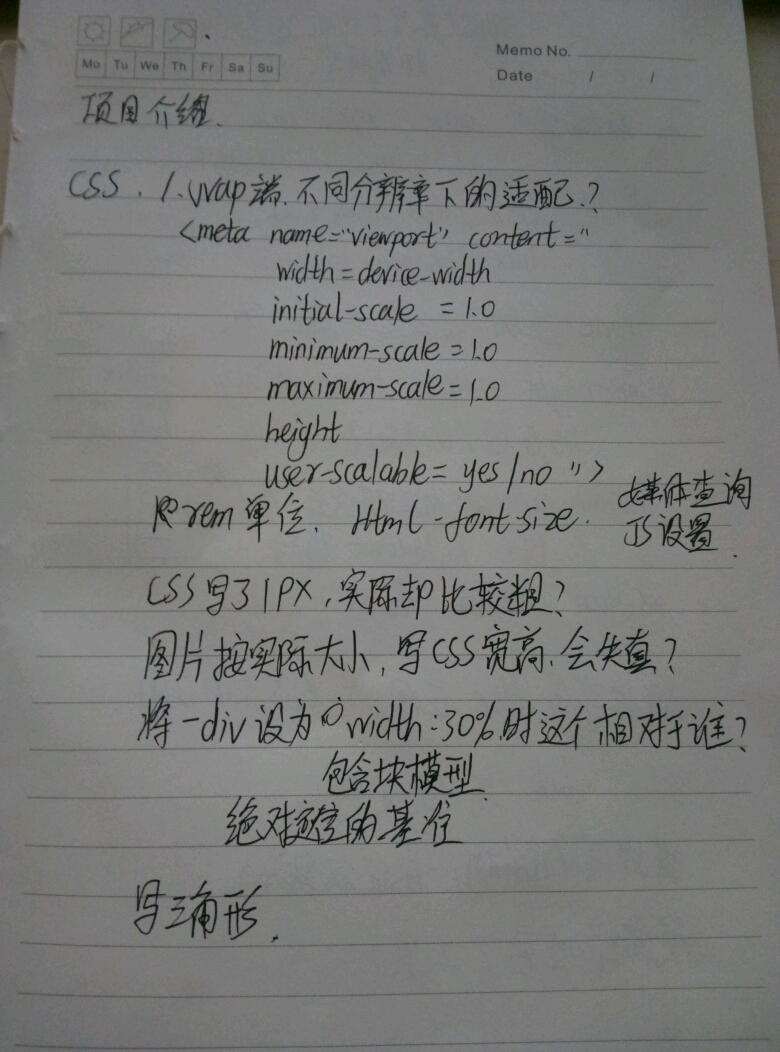 Memo No.
Mo Tu We Th Fr Sa Su
Date / /
项目介绍.
CSS. 1. wap端.不同分辨率下的适配.?
<meta name="viewport" content="
width=device-width
initial-scale = 1.0
minimum-scale = 1.0
maximum-scale = 1.0
height
user-scalable = yes/no ">
rem单位. Html - font-size. 媒体查询
JS设置.
CSS写了1PX,实际却比较粗?
图片按实际大小,写CSS宽高.会失真?
将一div设为 width:30%.时这个相对于谁?
包含块模型.
绝对定位的基准
写三角形.